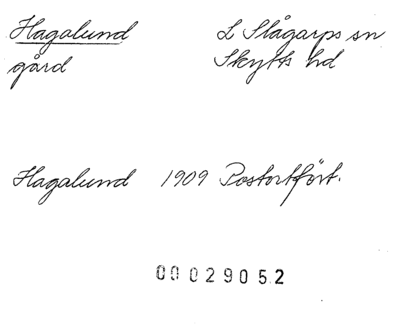 Hagalund L Slågarps sn
gård Skytts hd
Hagalund 1909 Postortfört.
00029052